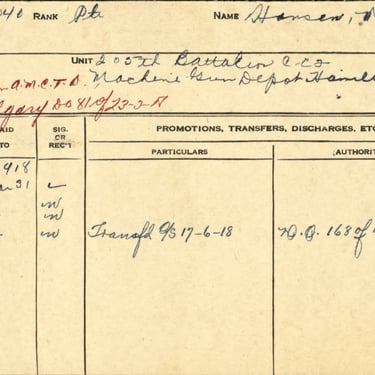 40 RANK Pte NAME Hansen,
UNIT 205th Battalion C.E.F.
A.M.C.T.D. Machine Gun Depot Hamil
gary DO 81 of 23-2-17
AID SIG. PROMOTIONS, TRANSFERS, DISCHARGES, ETC
TO OR REC'T PARTICULARS AUTHORIT
918
31
Transfd C/S 17-6-18 D.O. 168 of